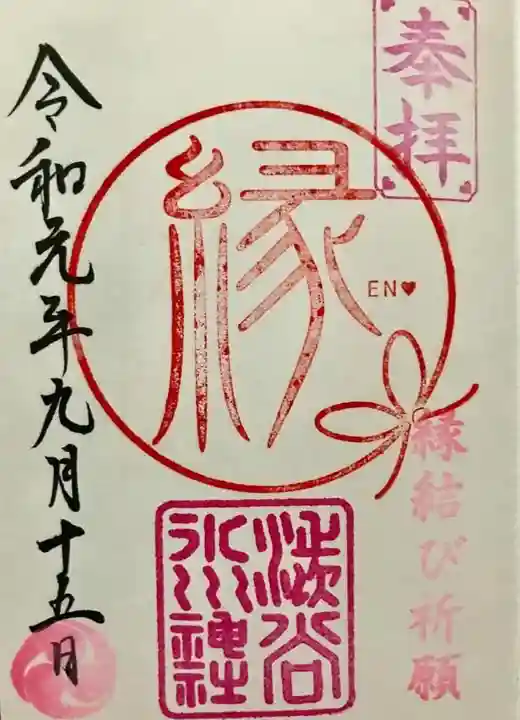 奉拝
縁
EN♥
縁結び祈願
渋谷
氷川神社
令和元年九月十五日